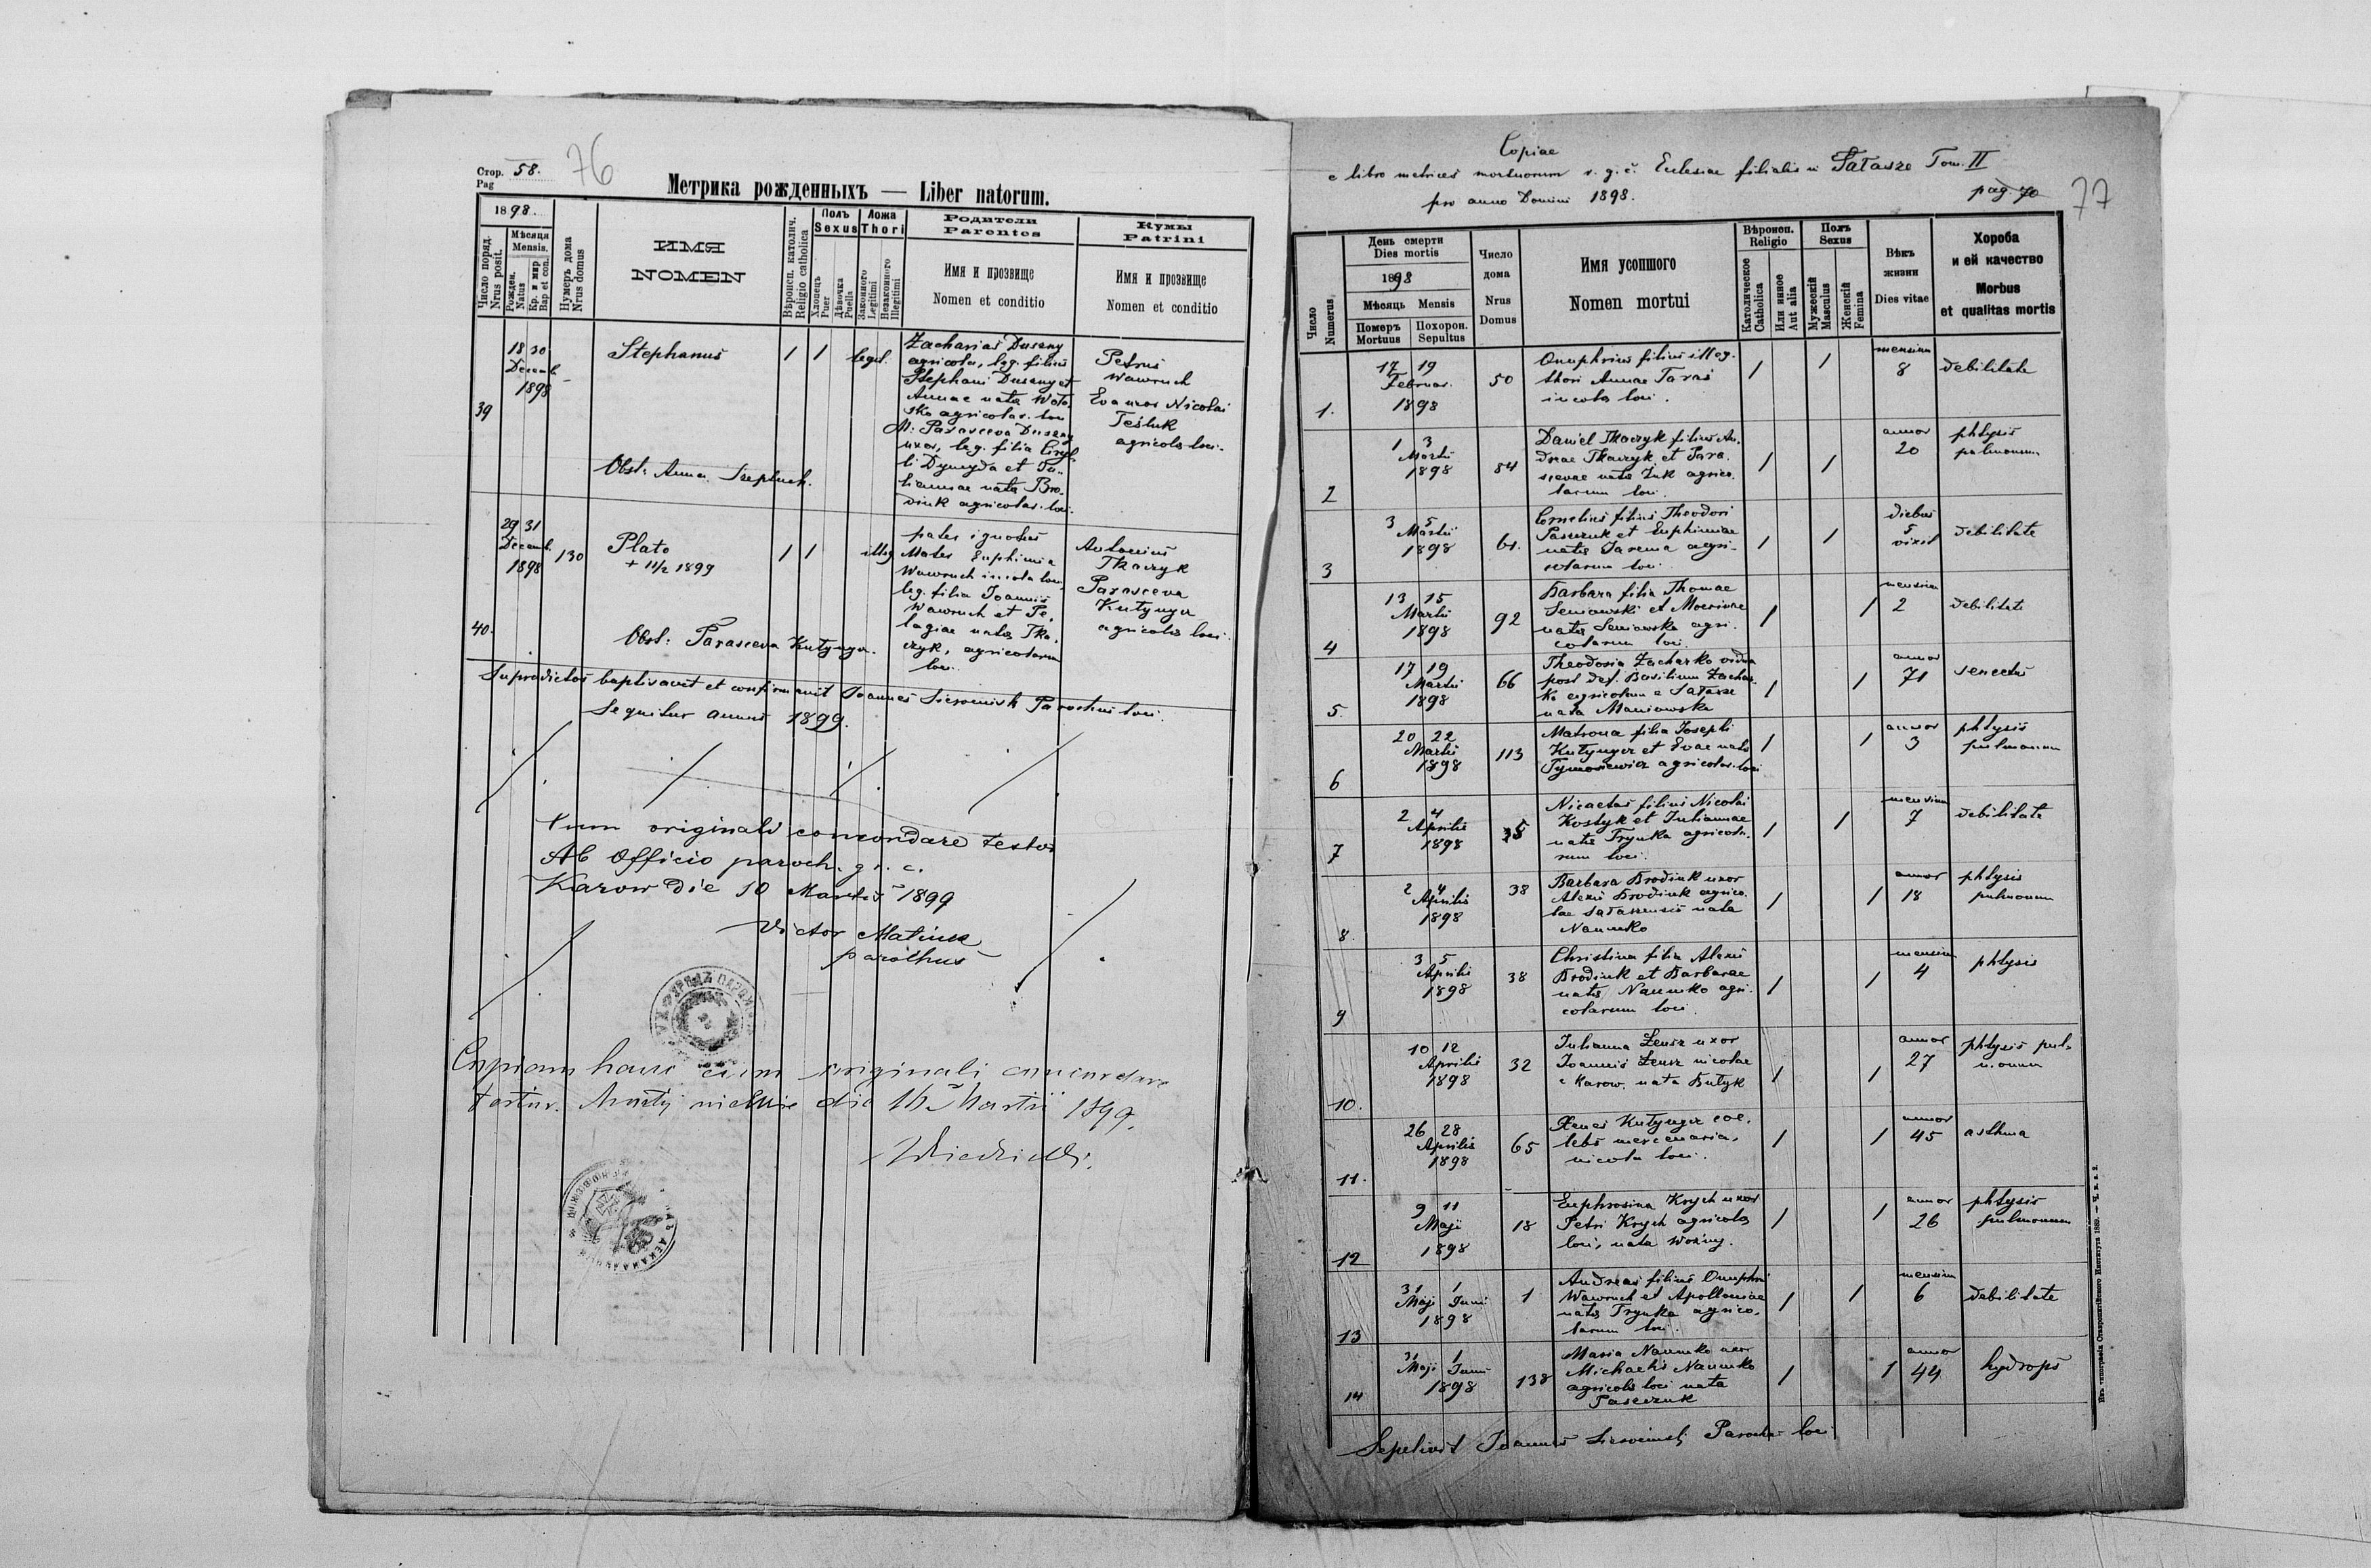 Стор. 58.
Pag
76
Метрика рожденныхъ — Liber natorum.
1898.
Число поряд.
Nrus posit.
Мѣсяця
Mensis.
Рожден.
Natus
Кр. и мир
Bap et con.
Нумеръ дома
Nrus domus
ИМЯ
NOMEN
Вѣроисп. католич.
Religio catholica
Полъ
Sexus
Хлопець
Puer
Дѣвочка
Puella
Ложа
Thori
Законного
Legitimi
Незаконного
Illegitimi
Родители
Parentes
Имя и прозвище
Nomen et conditio
Кумы
Patrini
Имя и прозвище
Nomen et conditio
39
18 30
Decemb.
1898
Stephanus
1 1 legit.
Zacharias Dusany
agricola, leg. filius
Stephani Dusany et
Annae nata Woto-
ska agricolar. loci
M: Parasceva Dusany
uxor, leg. filia Ciryl-
li Dymyda et Ju-
liannae nata Bro-
diuk agricolar. loci.
Petrus
Wawruch
Eva uxor Nicolai
Teśluk
agricola loci.
Obst: Anna
40.
29 31
Decemb.
1898
130
Plato
+ 11/2 1899
1 1 illeg
pater ignotus
Mater Euphimia
Wawruch incola loci
leg. filia Joannis
Wawruch et Pe-
lagiae nata Tka-
czyk, agricolarum
loci.
Antonius
Tkaczyk
Parasceva
Kutynya
agricolis loci.
Obst: Parasceva Kutynya.
Supradictos baptisavit et confirmavit Joannes Parochus loci.
Sequitur annus 1899.
Cum originali concordare testor
Ab Officio paroch. gr. c.
Karow die 10 Martii 1899
Victor Matiuk
parochus
Copiam hanc cum originali concordare
testor. die 16 Martii 1899.
Copiae
e libro metrices mortuorum r. g. c. Ecclesiae filialis in Sałasze Tom. II
pro anno Domini 1898.
pag. 70
77
Число
Numerus
День смерти
Dies mortis
1898
Мѣсяць Mensis
Померъ
Mortuus
Похорон.
Sepultus
Число
дома
Nrus
Domus
Имя усопшого
Nomen mortui
Вѣроисп.
Religio
Католическое
Catholica
Или инное
Aut alia
Полъ
Sexus
Мужескій
Masculus
Женскій
Femina
Вѣкъ
жизни
Dies vitae
Хороба
и ей качество
Morbus
et qualitas mortis
1.
17 19
Februar.
1898
50
Onuphrius filius illeg.
thori Annae Taras
incola loci.
1 1
mensium
8
debilitate
2
1 3
Martii
1898
84
Daniel Tkaczyk filius An-
dreae Tkaczyk et Para-
scevae nata Zuk agrico-
larum loci.
1 1
annor
20
phtysis
pulmonum
3
3 5
Martii
1898
61.
Cornelius filius Theodori
Pasieczuk et Euphimiae
nata Jarema agri-
colarum loci.
1 1
diebus
5
vixit
debilitate
4
13 15
Martii
1898
92
Barbara filia Thomae
Seniowski et
nata Seniowska agri-
colarum loci.
1 1
mensium
2
debilitate
5.
17 19
Martii
1898
66
Theodosia Zacharko vidua
post def. Basilium Zachar-
ko agricolam e Sałasze
nata Maniowska
1 1
annor
71
senectus
6
20 22
Martii
1898
113
Matrona filia Josephi
Kutynya et Evae nata
Tymosiewicz agricolar. loci
1 1
annor
3
phtysis
pulmonum
7
2 4
Aprilis
1898
35
Nicaetas filius Nicolai
Kostyk et Juliannae
nata Trynka agricola-
rum loci.
1 1
mensium
7
debilitate
8.
2 4
Aprilis
1898
38
Barbara Brodiuk uxor
Alexii Brodiuk agrico-
lae Sałaszensis nata
Naumko
1 1
annor
18
phtysis
pulmonum
9
3 5
Aprilis
1898
38
Christina filia Alexii
Brodiuk et Barbarae
nata Naumko agri-
colarum loci.
1 1
mensium
4
phtysis
10.
10 12
Aprilis
1898
32
Julianna Zeusz uxor
Joannis Zeusz incolae
e Karow. nata Butyk
1 1
annor
27
phtysis pul-
monum
11.
26 28
Aprilis
1898
65
Xenei Kutynya coe-
lebs mercenaria,
incola loci.
1 1
annor
45
asthma
12
9 11
Maji
1898
18
Euphrosina Krych uxor
Petri Krych agricola
loci, nata Woźny.
1 1
annor
26
phtysis
pulmonum
13
31 1
Maji Juni
1898
1
Andreas filius Onuphri
Wawruch et Apolloniae
nata Trynka agrico-
larum loci.
1 1
mensium
6
debilitate
14
31 1
Maji Juni
1898
138
Maria Naumko uxor
Michaelis Naumko
agricola loci nata
Pasieczuk
1 1
annor
44
hydrops
Sepelivit Joannes Parochus loci